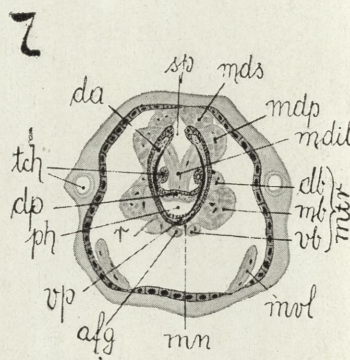 7
sp
mds
da
mdp
mdil
tch
dlb
mb
vb
mxr
dp
ph
r
vp
afg
mn
mvl